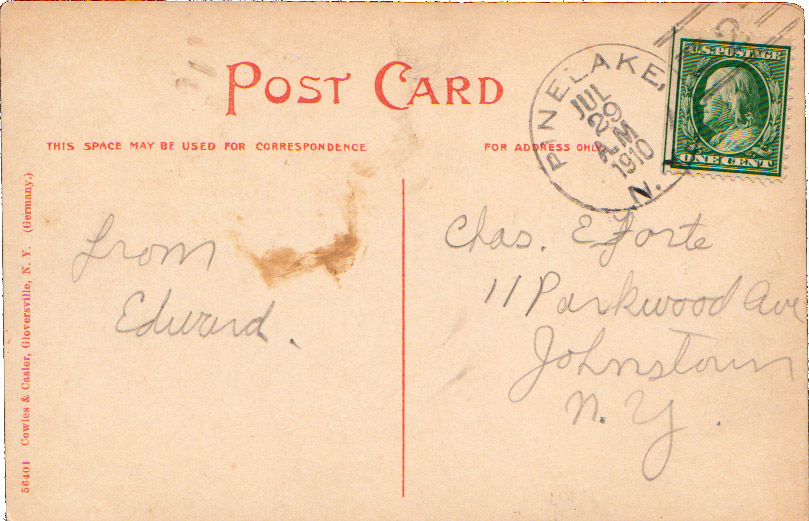 POST CARD
THIS SPACE MAY BE USED FOR CORRESPONDENCE
FOR ADDRESS ONLY
PINE LAKE,
JUL
29
AM
1910
N.
U.S. POSTAGE
ONE CENT
from
Edward.
Chas. E Forte
11 Parkwood Ave
Johnstown
N. Y.
56401 Cowles & Casler, Gloversville, N. Y. (Germany.)